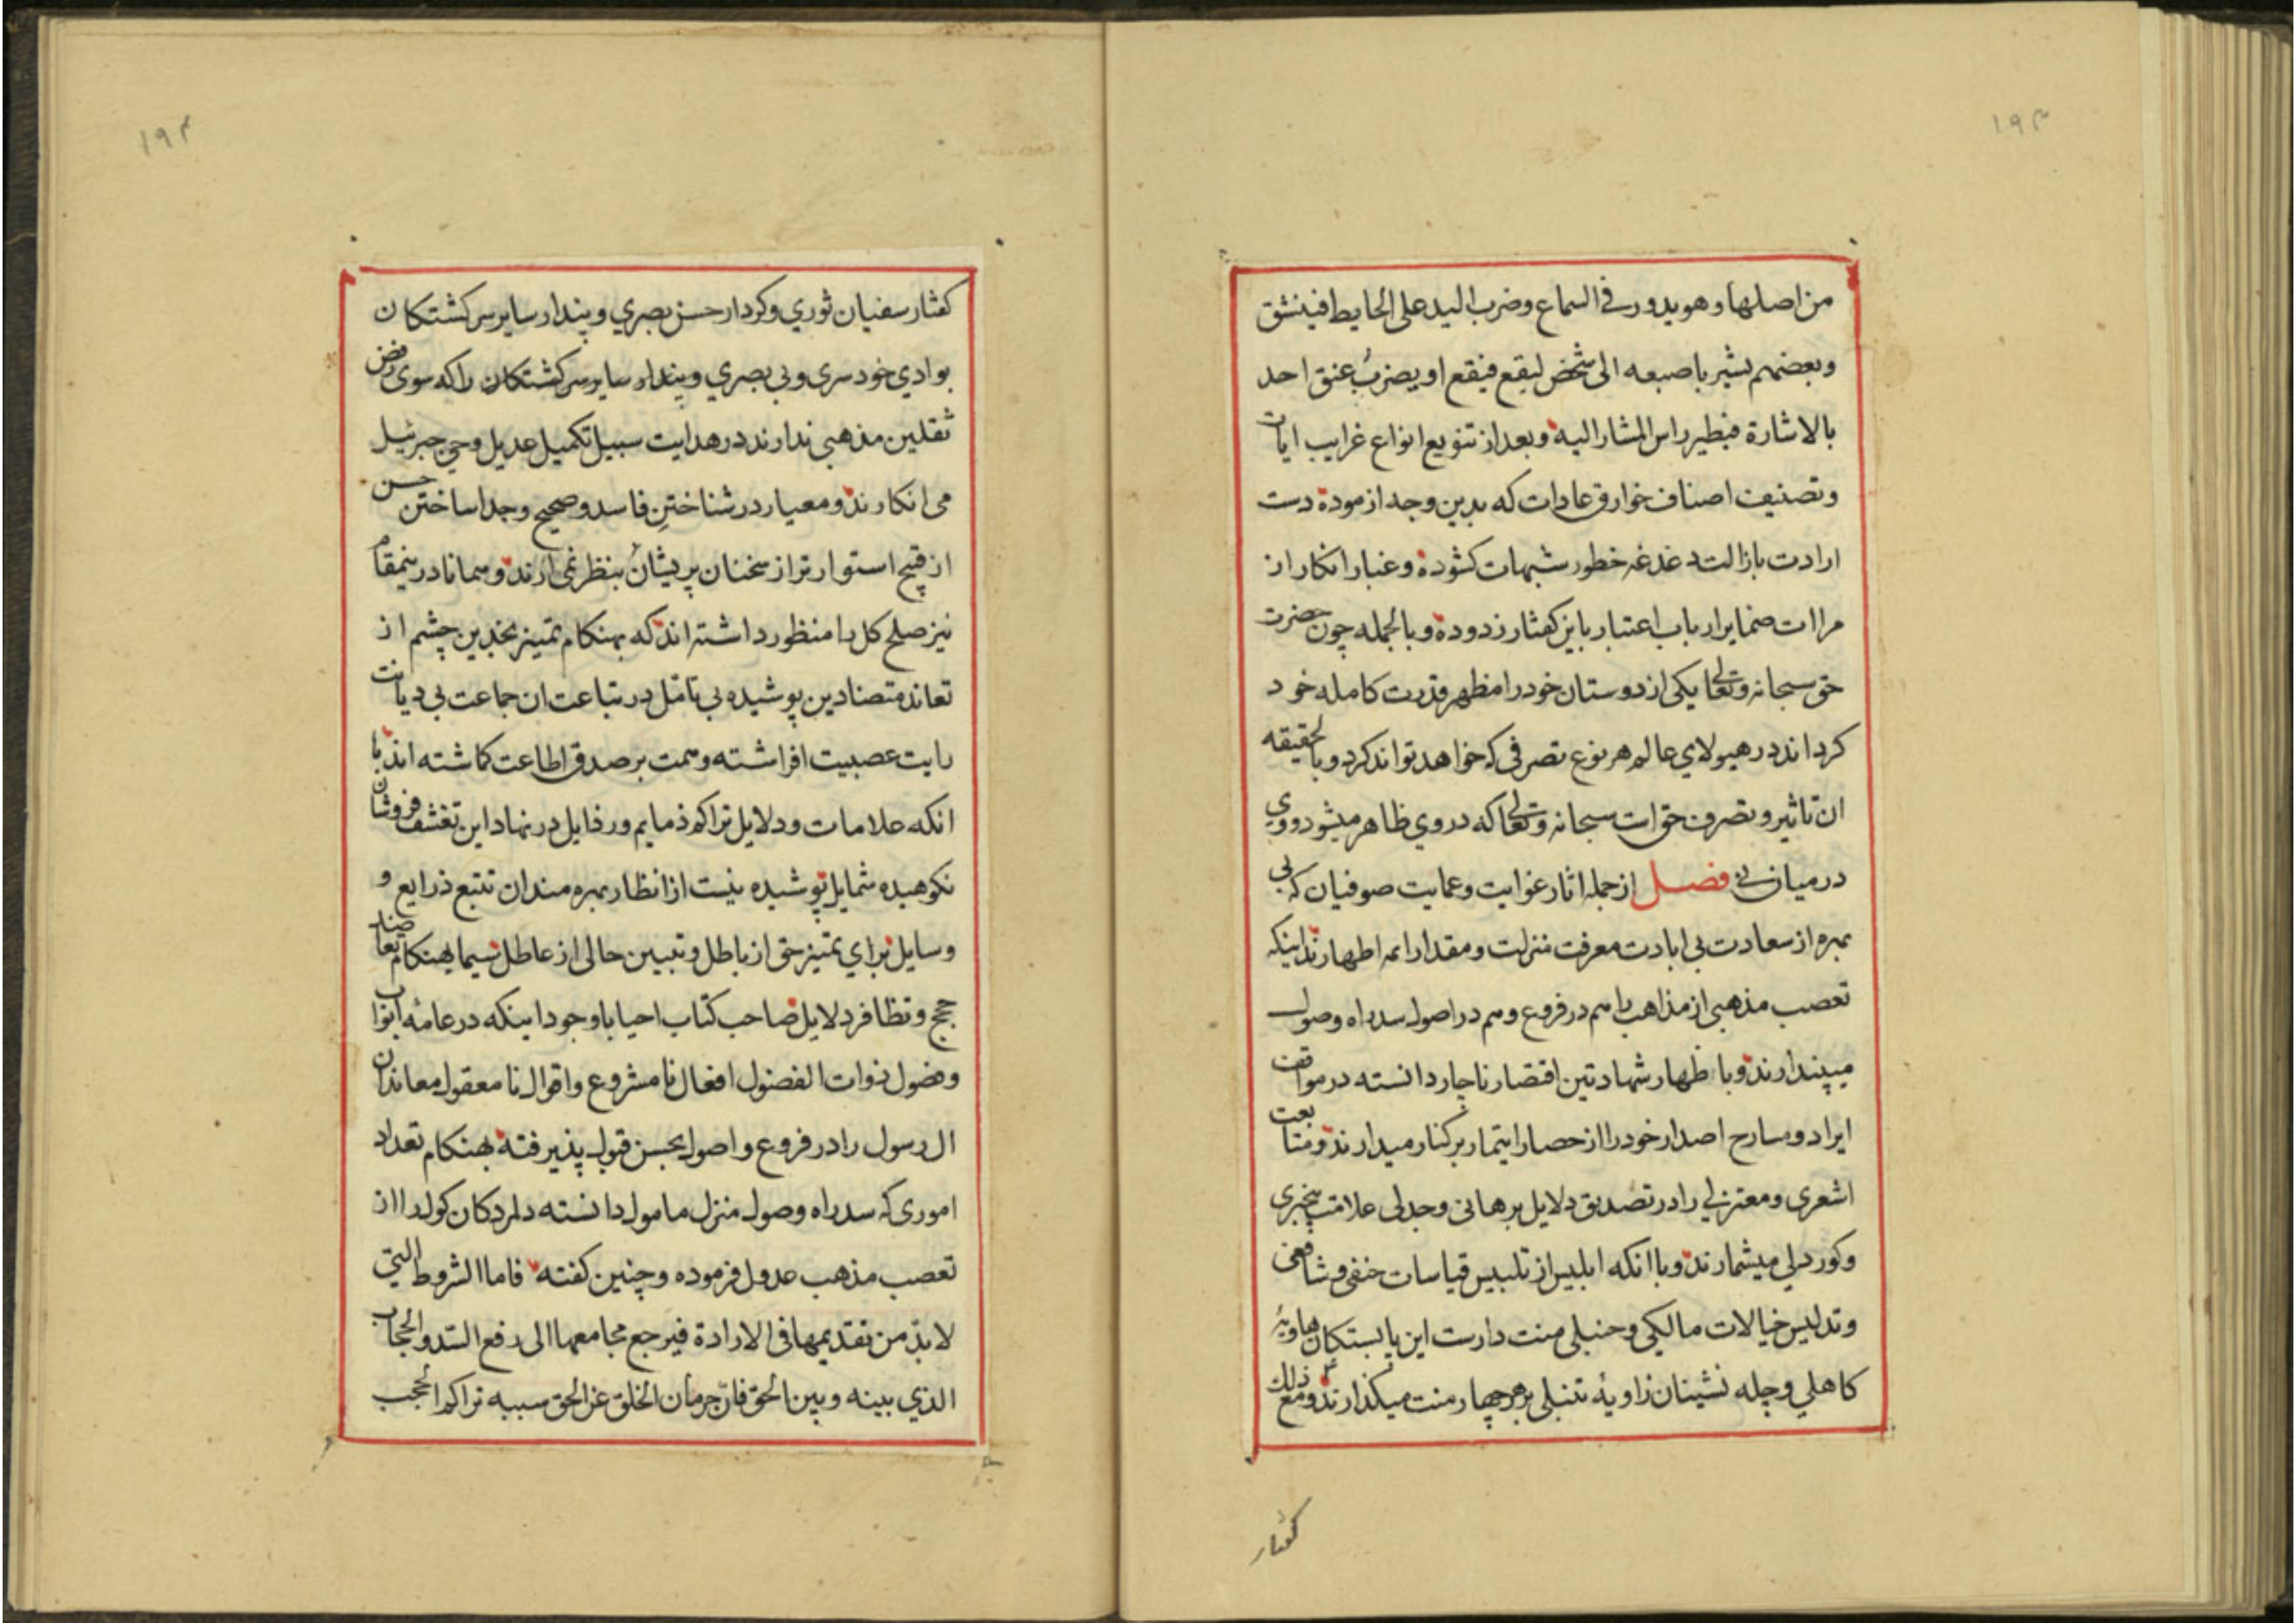 ۱۹۳
من اصلها وهو يدور فى السماع وضرب اليد على الحايط فينشق
وبعضهم يشير باصبعه الى شخص ليقع فيقع او يضرب عنق احد
بالاشارة فيطير راس المشار اليه وبعد از تنويع انواع غرايب ايات
وتصنيف اصناف خوارق عادات كه بدين وجه از موده دست
ارادت بازالت دغدغه خطور شبهات كشوده وغبار انكار از
مراات ضماير ارباب اعتبار باين كفتار زدوده وبالجمله چون حضرت
حق سبحانه وتعالى يكى از دوستان خود را مظهر قدرت كامله خود
كرداند در هيولاي عالم هر نوع تصرفى كه خواهد تواند كرد وبالحقيقه
ان تاثير وتصرف حق است سبحانه وتعالى كه در وي ظاهر ميشود ووي
در ميان نى فصل از جمله اثار غوايت وعمايت صوفيان كه بى
بهره از سعادت بى ابادت معرفت منزلت ومقدار ائمه اطهارند اينكه
تعصب مذهبى از مذاهب را هم در فروع وهم در اصول سد راه وصول
ميپندارند وباظهار شهادتين اقتصار ناچار دانسته در مواقف
ايراد ومسارح اصدار خود را از حصار ايتمار بركنار ميدارند ومتابعت
اشعرى ومعتزلي را در تصديق دلايل برهانى وجدلى علامت بيخبرى
وكور دلي ميشمارند وباانكه ابليس از تلبيس قياسات حنفى وشافعى
وتدليس خيالات مالكي وحنبلى منت دارست اين پابستكان هاويۀ
كاهلي وچله نشينان زاويۀ تنبلى بر هر چهار منت ميكذارند ومع ذلك
كفتار
۱۹۴
كفتار سفيان ثوري وكردار حسن بصري وپندار ساير سركشتكان
بوادي خود سرى وبى بصري وپندار ساير سركشتكان را كه سوى رفض
ثقلين مذهبى ندارند در هدايت سبيل تكميل عديل وحي جبرئيل
مى انكارند ومعيار در شناختن فاسد وصحيح وجدا ساختن حسن
از قبيح استوارتر از سخنان پريشان بنظر نمى ارند وهمانا در ينمقام
نيز صلح كل را منظور داشته اند كه بهنكام تميز نجدين چشم از
تعاند متضادين پوشيده بى تامل در متباعت ان جماعت بى ديانت
رايت عصبيت افراشته وهمت بر صدق اطاعت كماشته اند با
انكه علامات ودلايل تراكم ذمايم ورذايل در نهاد اين تقشف فروشان
نكوهيده شمايل پوشيده نيست از انظار بهره مندان تتبع ذرايع و
وسايل براي تميز حق از باطل وتبيين حالى از عاطل سيما بهنكام تعاضد
حجج وتظافر دلايل صاحب كتاب احيا باوجود اينكه در عامۀ ابواب
وفصول ذوات الفضول افعال نامشروع واقوال نامعقول معاندان
ال رسول را در فروع واصول بحسن قبول پذيرفته بهنكام تعداد
امورى كه سد راه وصول منزل مامول دانسته دلمردكان كول را از
تعصب مذهب عدول فرموده وچنين كفته فاما الشروط التي
لابدّ من تقديمها فى الارادة فيرجع مجامعها الى رفع السّد والحجاب
الذي بينه وبين الحق فانّ حرمان الخلق عن الحق سببه تراكم الحجب